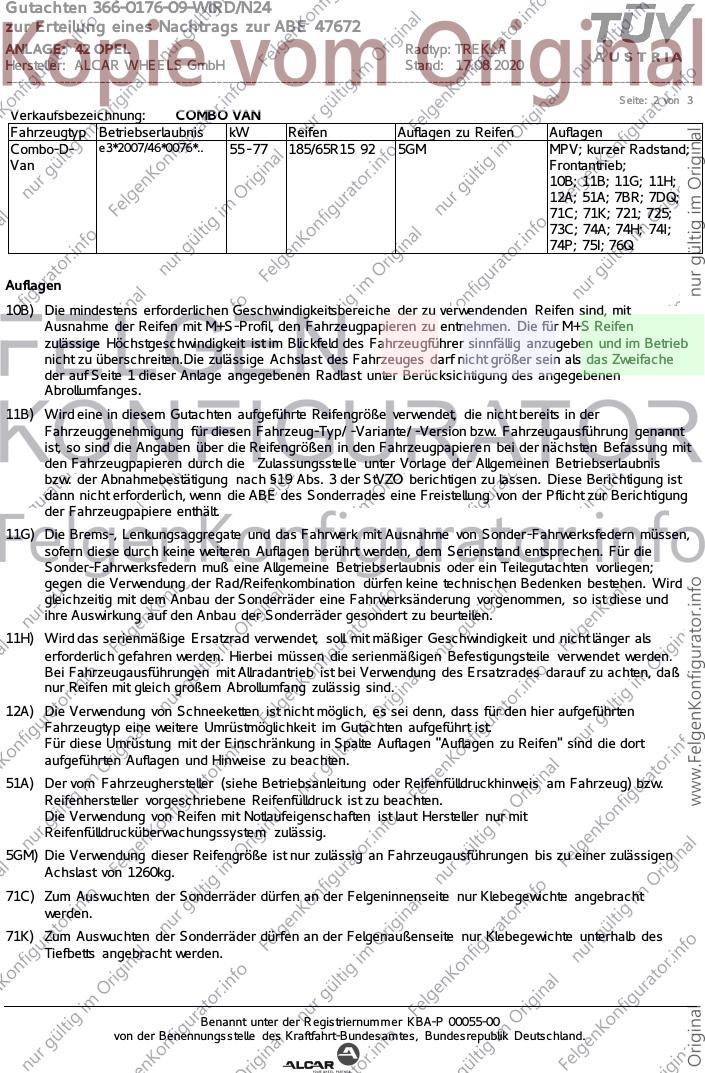 Gutachten 366-0176-09-WIRD/N24
zur Erteilung eines Nachtrags zur ABE 47672
ANLAGE: 42 OPEL
Hersteller: ALCAR WHEELS GmbH
Radtyp: TREKLA
Stand: 17.08.2020
TÜV
AUSTRIA
Kopie vom Original
Seite: 2 von 3
Verkaufsbezeichnung: COMBO VAN
Fahrzeugtyp Betriebserlaubnis kW Reifen Auflagen zu Reifen Auflagen
Combo-D-Van e3*2007/46*0076*.. 55-77 185/65R15 92 5GM MPV; kurzer Radstand;
Frontantrieb;
10B; 11B; 11G; 11H;
12A; 51A; 7BR; 7DQ;
71C; 71K; 721; 725;
73C; 74A; 74H; 74I;
74P; 75I; 76Q
Auflagen
10B) Die mindestens erforderlichen Geschwindigkeitsbereiche der zu verwendenden Reifen sind, mit
Ausnahme der Reifen mit M+S-Profil, den Fahrzeugpapieren zu entnehmen. Die für M+S Reifen
zulässige Höchstgeschwindigkeit ist im Blickfeld des Fahrzeugführer sinnfällig anzugeben und im Betrieb
nicht zu überschreiten.Die zulässige Achslast des Fahrzeuges darf nicht größer sein als das Zweifache
der auf Seite 1 dieser Anlage angegebenen Radlast unter Berücksichtigung des angegebenen
Abrollumfanges.
11B) Wird eine in diesem Gutachten aufgeführte Reifengröße verwendet, die nicht bereits in der
Fahrzeuggenehmigung für diesen Fahrzeug-Typ/ -Variante/ -Version bzw. Fahrzeugausführung genannt
ist, so sind die Angaben über die Reifengrößen in den Fahrzeugpapieren bei der nächsten Befassung mit
den Fahrzeugpapieren durch die Zulassungsstelle unter Vorlage der Allgemeinen Betriebserlaubnis
bzw. der Abnahmebestätigung nach §19 Abs. 3 der StVZO berichtigen zu lassen. Diese Berichtigung ist
dann nicht erforderlich, wenn die ABE des Sonderrades eine Freistellung von der Pflicht zur Berichtigung
der Fahrzeugpapiere enthält.
11G) Die Brems-, Lenkungsaggregate und das Fahrwerk mit Ausnahme von Sonder-Fahrwerksfedern müssen,
sofern diese durch keine weiteren Auflagen berührt werden, dem Serienstand entsprechen. Für die
Sonder-Fahrwerksfedern muß eine Allgemeine Betriebserlaubnis oder ein Teilegutachten vorliegen;
gegen die Verwendung der Rad/Reifenkombination dürfen keine technischen Bedenken bestehen. Wird
gleichzeitig mit dem Anbau der Sonderräder eine Fahrwerksänderung vorgenommen, so ist diese und
ihre Auswirkung auf den Anbau der Sonderräder gesondert zu beurteilen.
11H) Wird das serienmäßige Ersatzrad verwendet, soll mit mäßiger Geschwindigkeit und nicht länger als
erforderlich gefahren werden. Hierbei müssen die serienmäßigen Befestigungsteile verwendet werden.
Bei Fahrzeugausführungen mit Allradantrieb ist bei Verwendung des Ersatzrades darauf zu achten, daß
nur Reifen mit gleich großem Abrollumfang zulässig sind.
12A) Die Verwendung von Schneeketten ist nicht möglich, es sei denn, dass für den hier aufgeführten
Fahrzeugtyp eine weitere Umrüstmöglichkeit im Gutachten aufgeführt ist.
Für diese Umrüstung mit der Einschränkung in Spalte Auflagen "Auflagen zu Reifen" sind die dort
aufgeführten Auflagen und Hinweise zu beachten.
51A) Der vom Fahrzeughersteller (siehe Betriebsanleitung oder Reifenfülldruckhinweis am Fahrzeug) bzw.
Reifenhersteller vorgeschriebene Reifenfülldruck ist zu beachten.
Die Verwendung von Reifen mit Notlaufeigenschaften ist laut Hersteller nur mit
Reifenfülldrucküberwachungssystem zulässig.
5GM) Die Verwendung dieser Reifengröße ist nur zulässig an Fahrzeugausführungen bis zu einer zulässigen
Achslast von 1260kg.
71C) Zum Auswuchten der Sonderräder dürfen an der Felgeninnenseite nur Klebegewichte angebracht
werden.
71K) Zum Auswuchten der Sonderräder dürfen an der Felgenaußenseite nur Klebegewichte unterhalb des
Tiefbetts angebracht werden.
FELGEN
KONFIGURATOR
FelgenKonfigurator.info
nur gültig im Original
www.FelgenKonfigurator.info
Original
Benannt unter der Registriernummer KBA-P 00055-00
von der Benennungsstelle des Kraftfahrt-Bundesamtes, Bundesrepublik Deutschland.
ALCAR